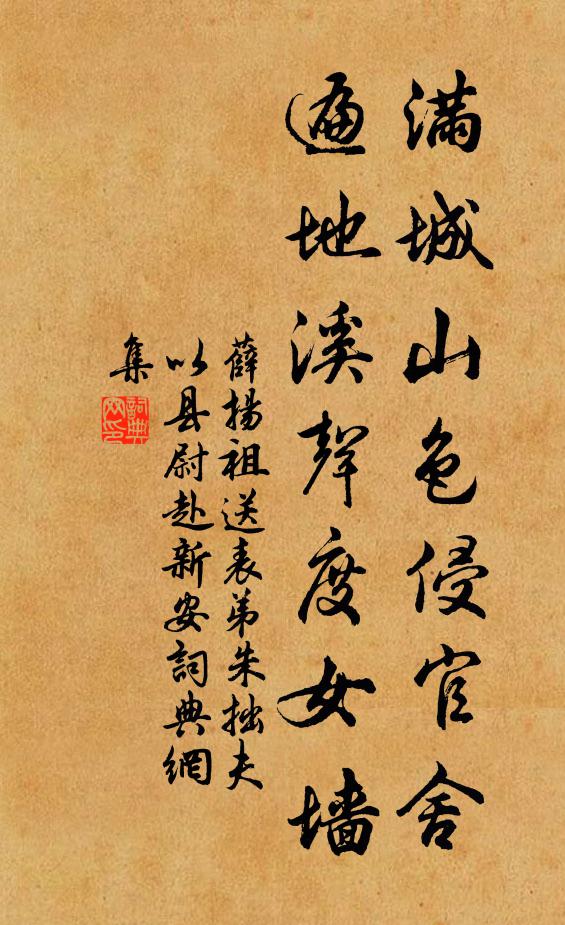 滿城山色侵官舍
遍地溪聲度女墙
薛揚祖送表弟朱拙夫
以县尉赴新安詞典網
集
詞典
网印